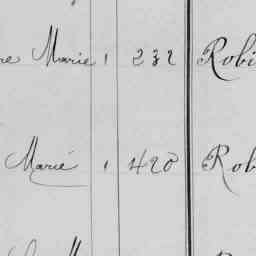 re Marie 1 232 Robi
Marié 1 420 Rob